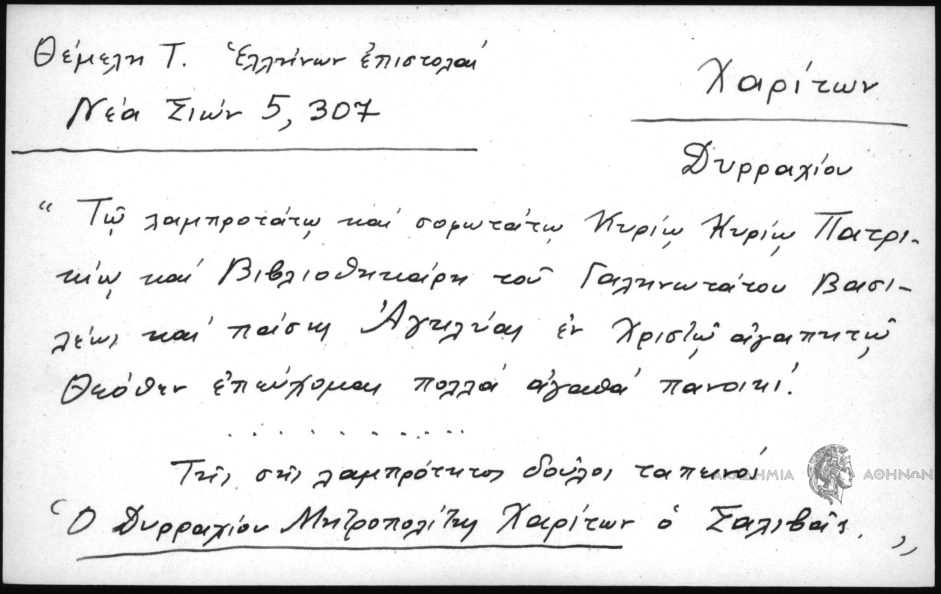 Θέμελη Τ. Ἑλλήνων ἐπιστολαί
Νέα Σιών 5, 307
Χαρίτων
Δυρραχίου
“ Τῷ λαμπροτάτῳ καί σοφωτάτῳ Κυρίῳ Κυρίῳ Πατρι-
κίῳ καί Βιβλιοθηκάρῃ τοῦ Γαληνωτάτου Βασι-
λέως καί πάσης Ἀγγλίας ἐν Χριστῷ ἀγαπητῷ
Θεόθεν ἐπεύχομαι πολλά ἀγαθά πανοικί.
. . . . . . . . . . .
Τῆς σῆς λαμπρότητος δοῦλος ταπεινός
Ὁ Δυρραχίου Μητροπολίτης Χαρίτων ὁ Σαλιβαῖς. ”
ΑΚΑΔΗΜΙΑ ΑΘΗΝΩΝ